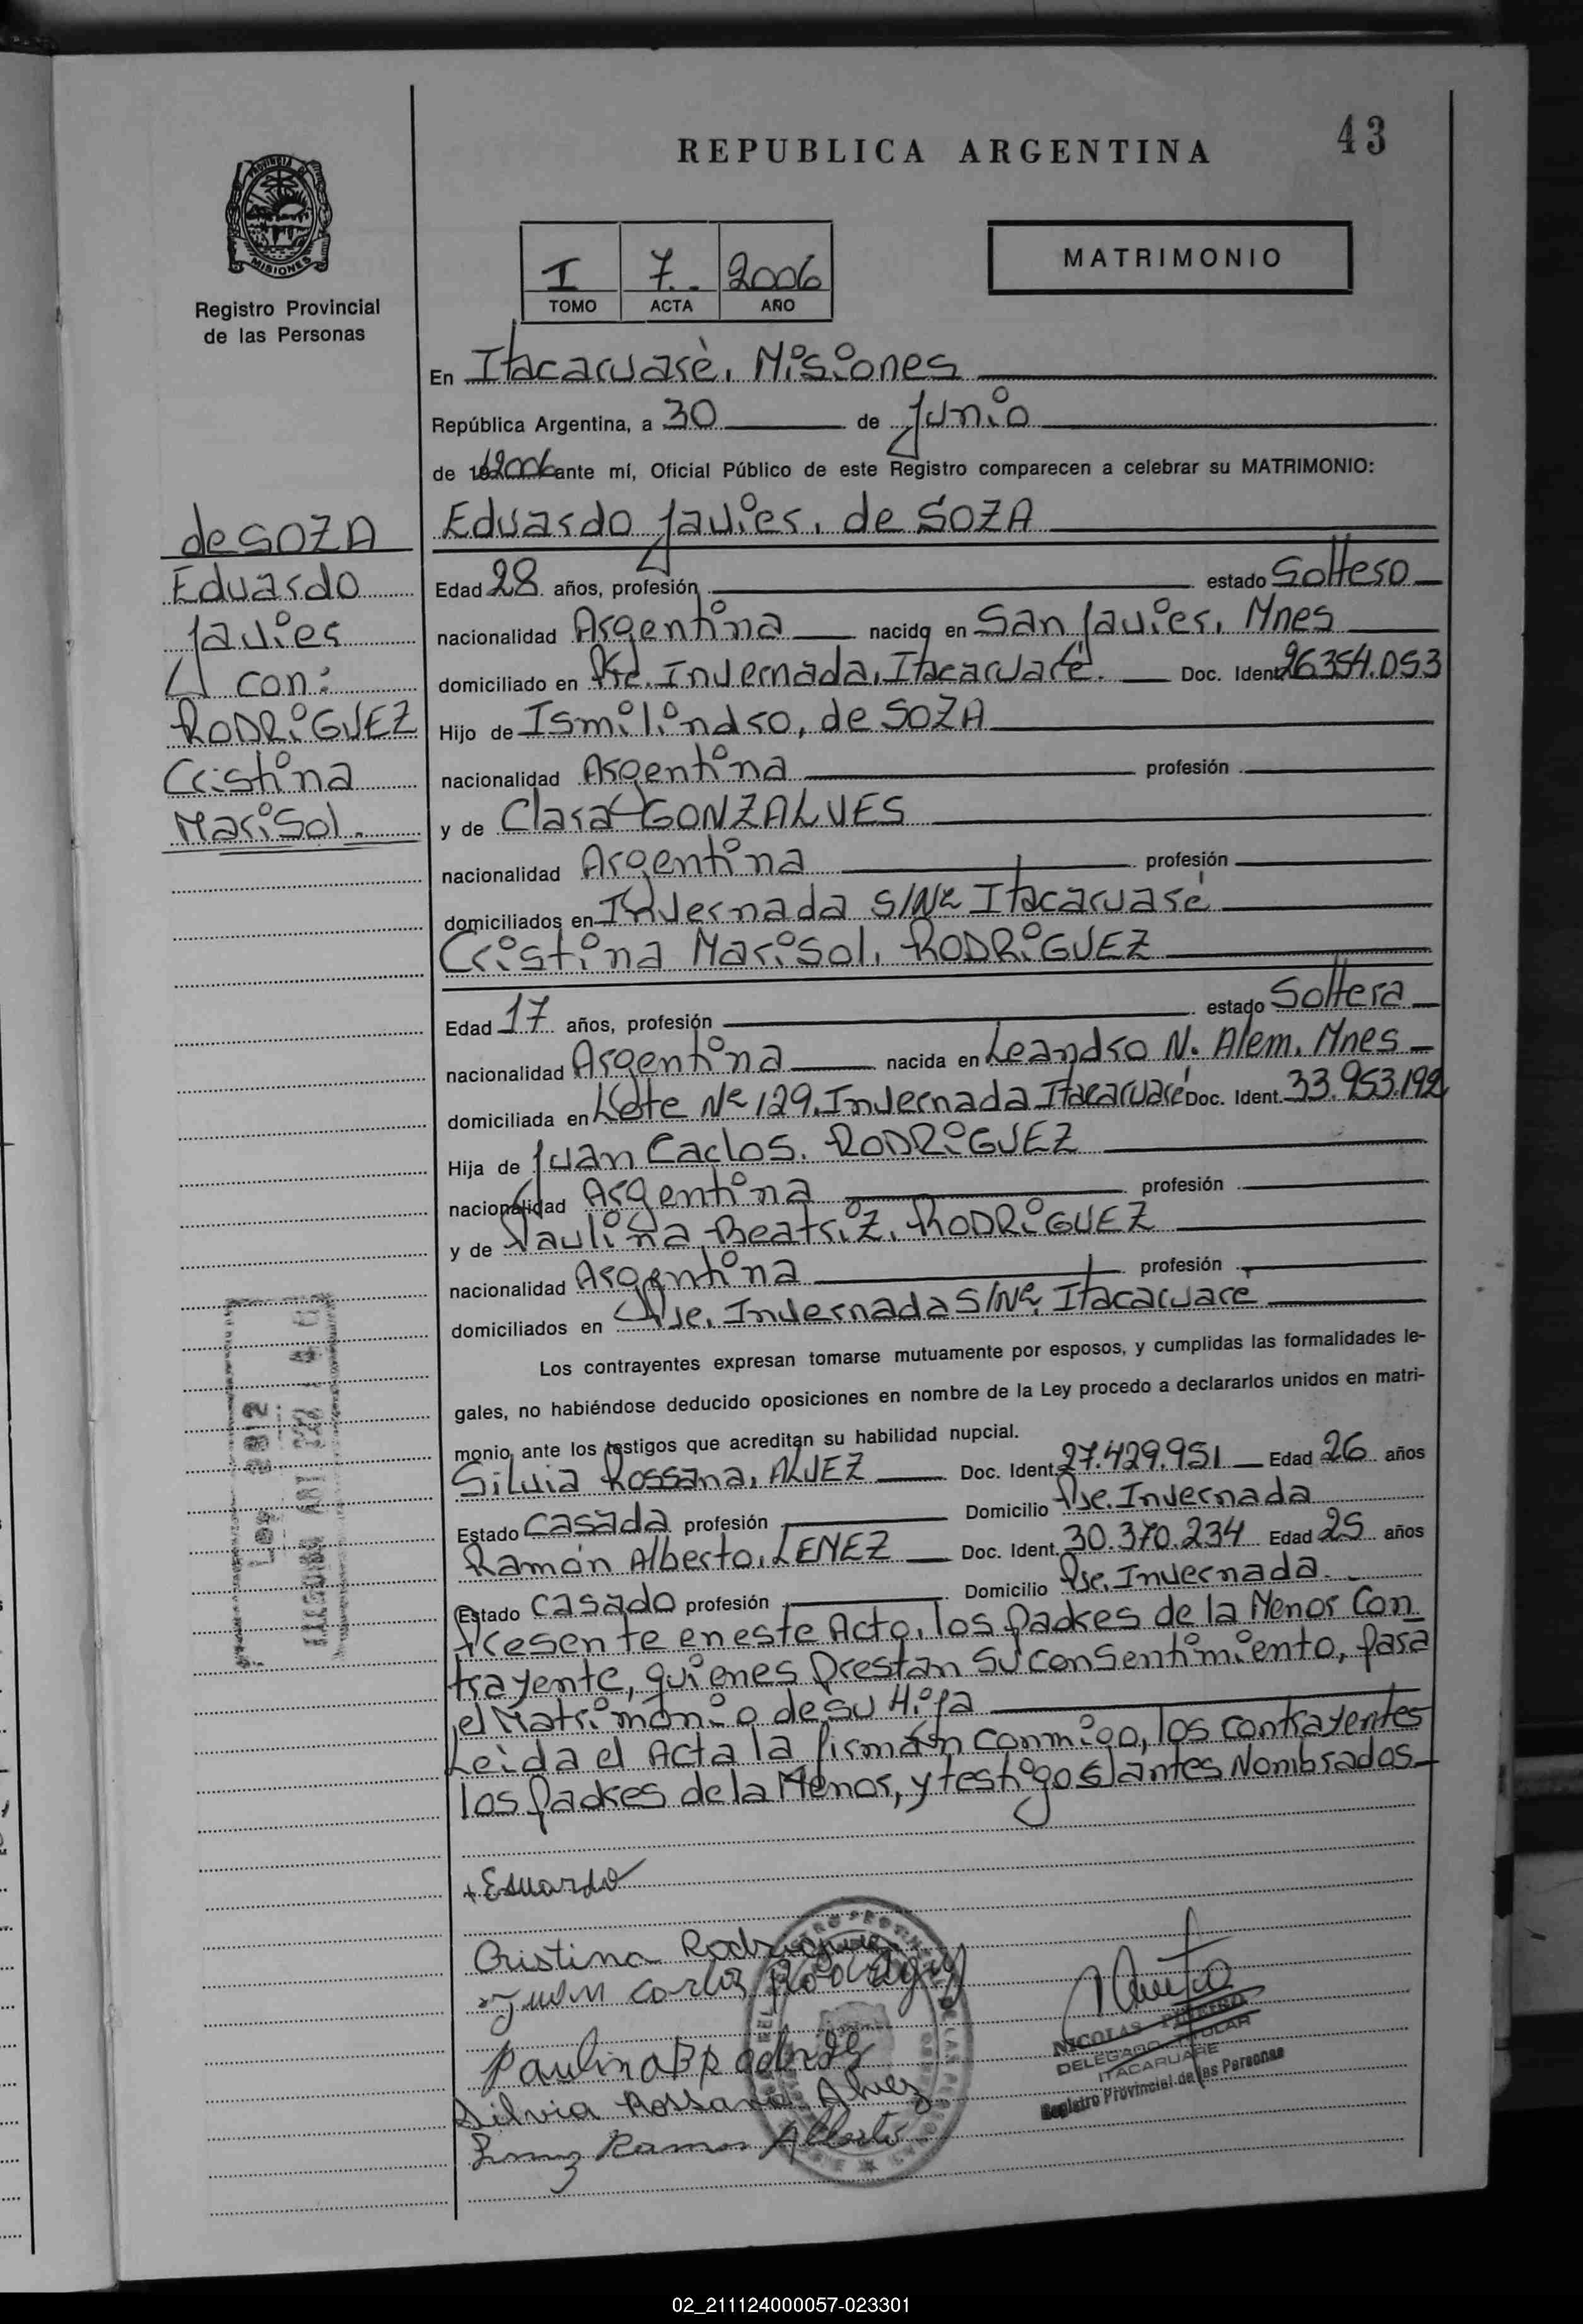 43
REPUBLICA ARGENTINA
PROVINCIA DE MISIONES
Registro Provincial
de las Personas
I 7.. 2006
TOMO ACTA AÑO
MATRIMONIO
En Itacaruarè, Misiones
República Argentina, a 30 de Junio
de 2006 ante mí, Oficial Público de este Registro comparecen a celebrar su MATRIMONIO:
de SOZA
Eduardo
Javier
con:
RODRIGUEZ
Cristina
Marisol.
Eduardo Javier, de SOZA
Edad 28 años, profesión estado Soltero
nacionalidad Argentina nacido en San Javier, Mnes
domiciliado en Pje. Invernada, Itacaruaré. Doc. Ident. 26354.053
Hijo de Ismilindro, de SOZA
nacionalidad Argentina profesión
y de Clara GONZALVES
nacionalidad Argentina profesión
domiciliados en Invernada S/Nº Itacaruaré
Cristina Marisol, RODRIGUEZ
Edad 17 años, profesión estado Soltera
nacionalidad Argentina nacida en Leandro N. Alem, Mnes
domiciliada en Lote Nº 129, Invernada Itacaruaré Doc. Ident. 33.953.192
Hija de Juan Carlos, RODRIGUEZ
nacionalidad Argentina profesión
y de Paulina Beatriz, RODRIGUEZ
nacionalidad Argentina profesión
domiciliados en Pje. Invernada S/Nº, Itacaruare
Los contrayentes expresan tomarse mutuamente por esposos, y cumplidas las formalidades le-
gales, no habiéndose deducido oposiciones en nombre de la Ley procedo a declararlos unidos en matri-
monio ante los testigos que acreditan su habilidad nupcial.
Silvia Rossana, ALVEZ Doc. Ident. 27.429.951 Edad 26 años
Estado Casada profesión Domicilio Pje. Invernada
Ramón Alberto, LEMEZ Doc. Ident. 30.370.234 Edad 25 años
Estado Casado profesión Domicilio Pje. Invernada.
Presente en este Acto, los padres de la Menor Con
trayente, quienes prestan su consentimiento, para
el Matrimonio de su Hija
Leida el Acta la firman conmigo, los contrayentes
los padres de la Menor, y testigos antes Nombrados
Eduardo
Cristina Rodriguez
Juan Carlos Rodriguez
Paulina B Rodriguez
Silvia Rossana Alvez
Ramon Alberto
NICOLAS
DELEGADO TITULAR
ITACARUARE
Registro Provincial de las Personas
02_211124000057-023301